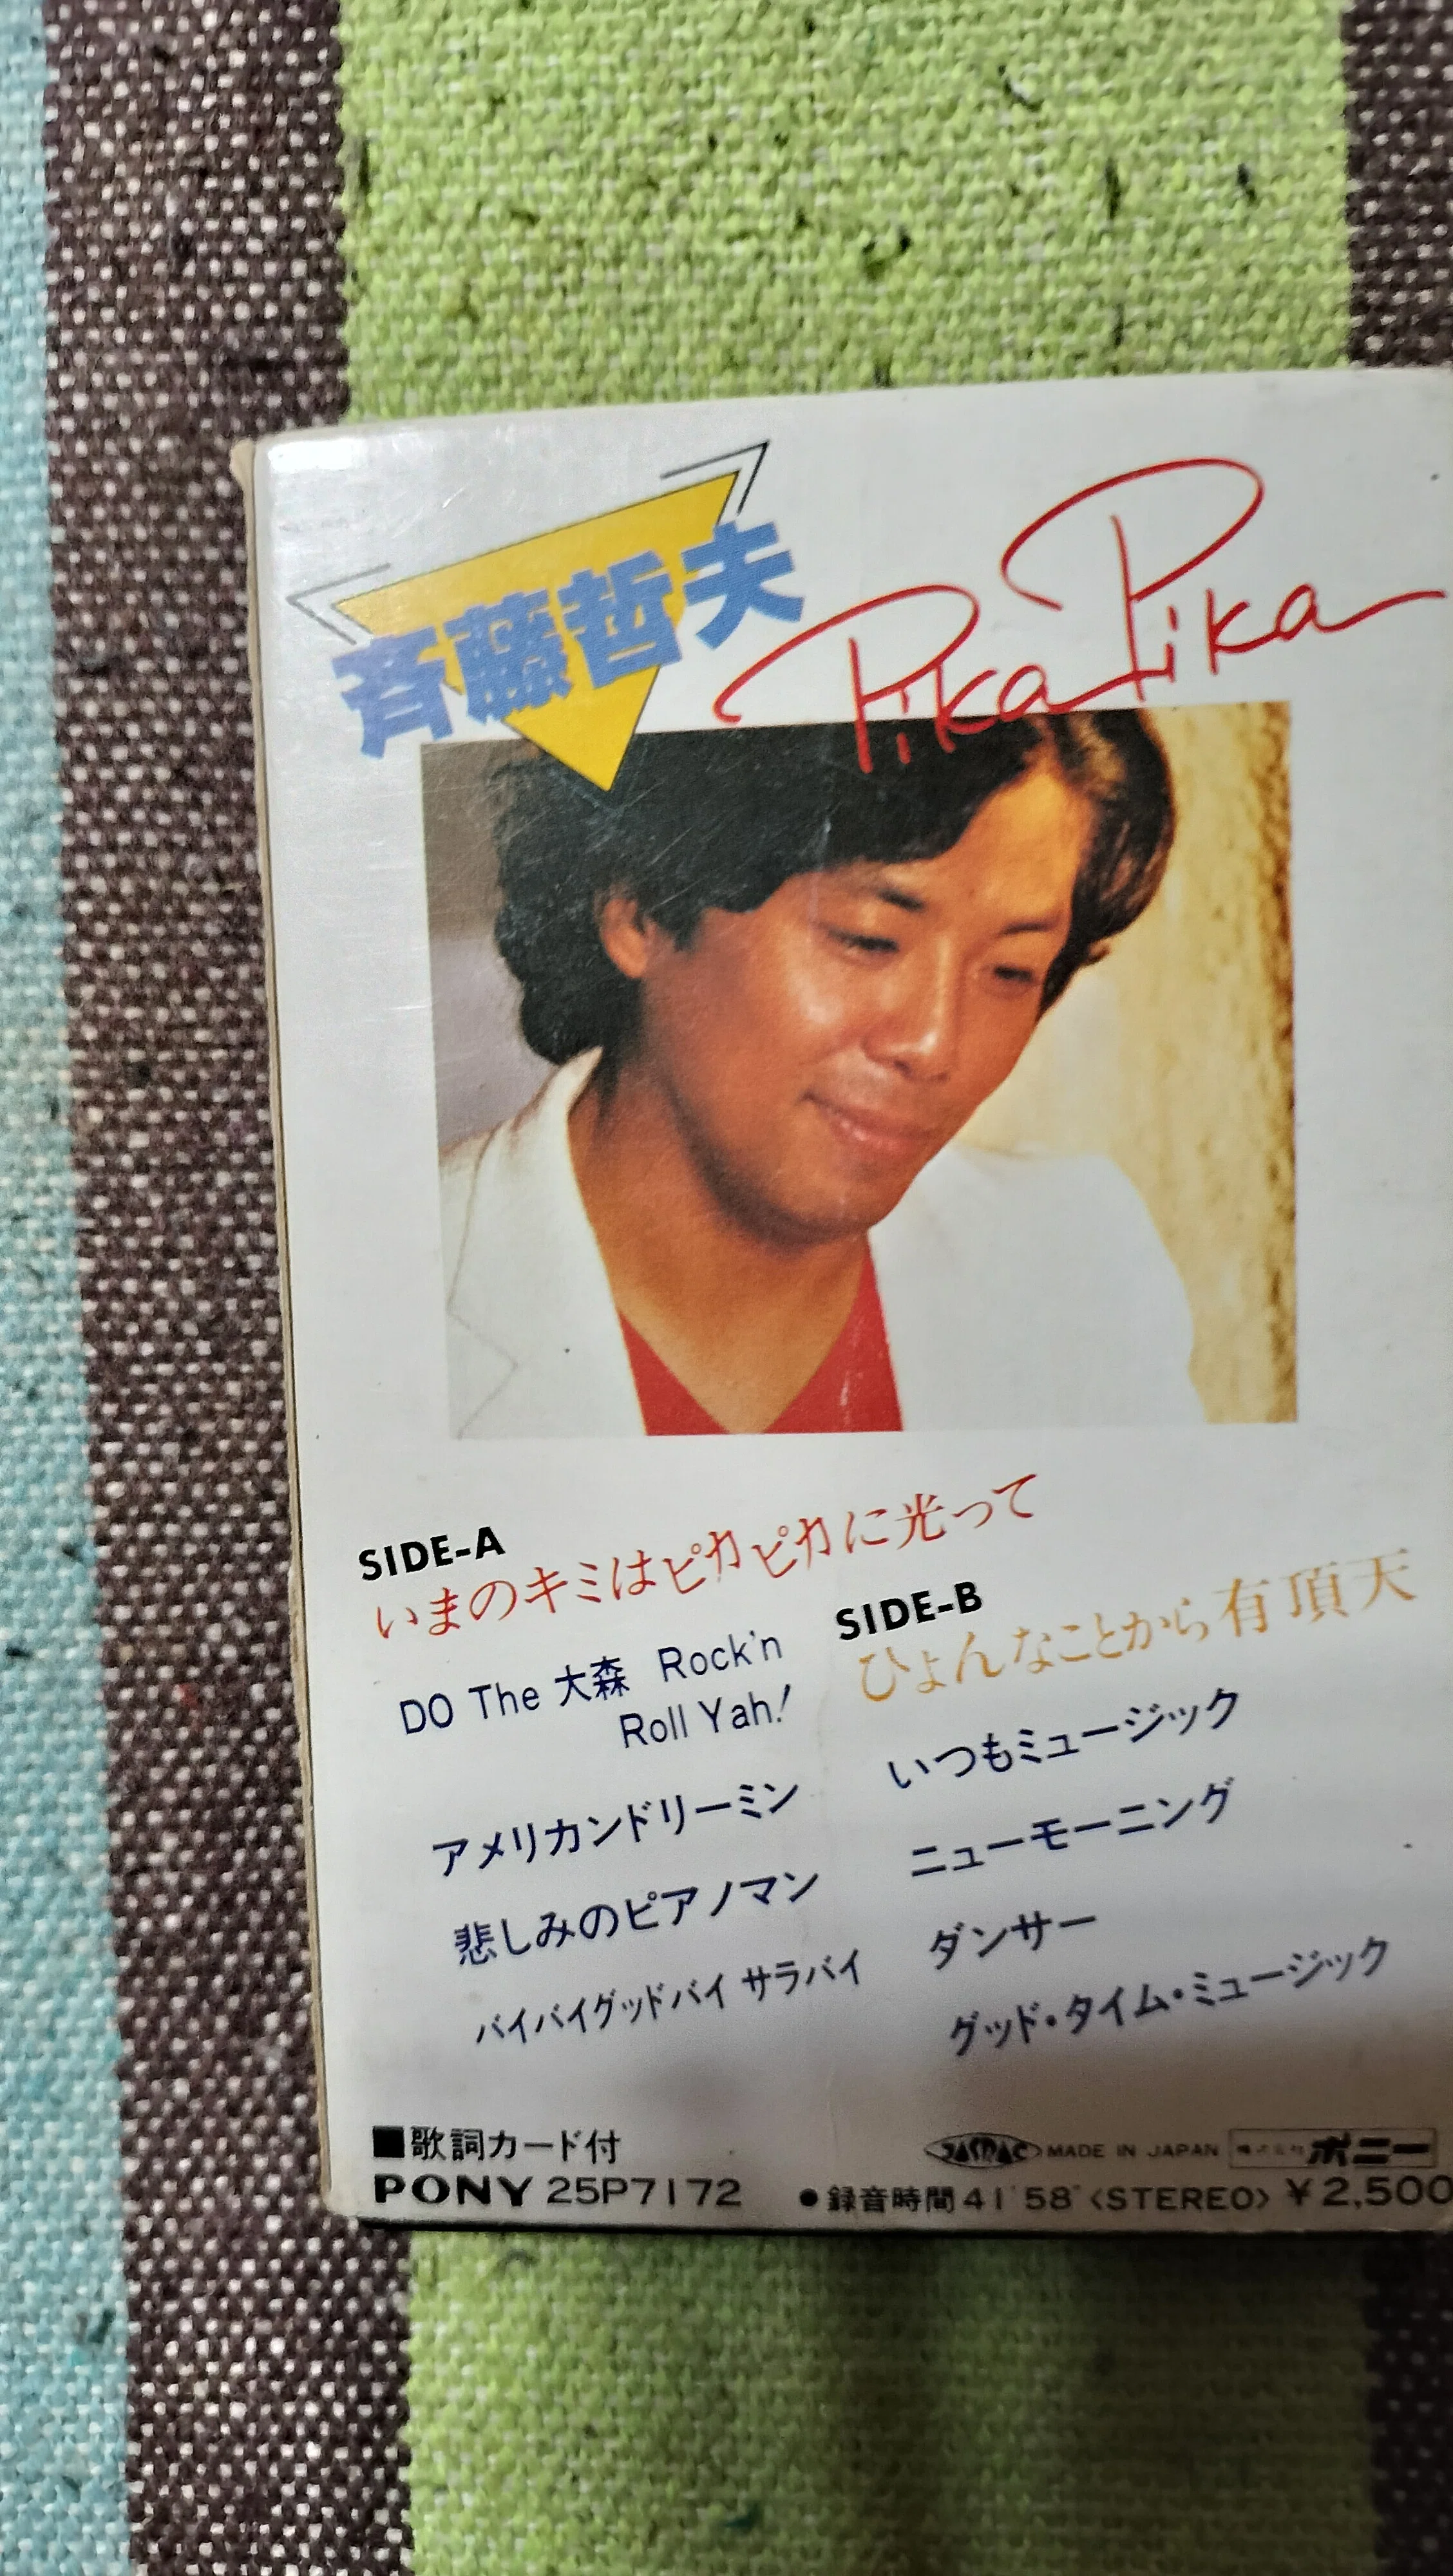 斉藤哲夫
Pika Pika
SIDE-A
いまのキミはピカピカに光って
DO The 大森 Rock'n
Roll Yah!
アメリカンドリーミン
悲しみのピアノマン
バイバイグッドバイ サラバイ
SIDE-B
ひょんなことから有頂天
いつもミュージック
ニューモーニング
ダンサー
グッド・タイム・ミュージック
■歌詞カード付
JASRAC MADE IN JAPAN 株式会社ポニー
PONY 25P7172 ●録音時間41'58" <STEREO> ¥2,500